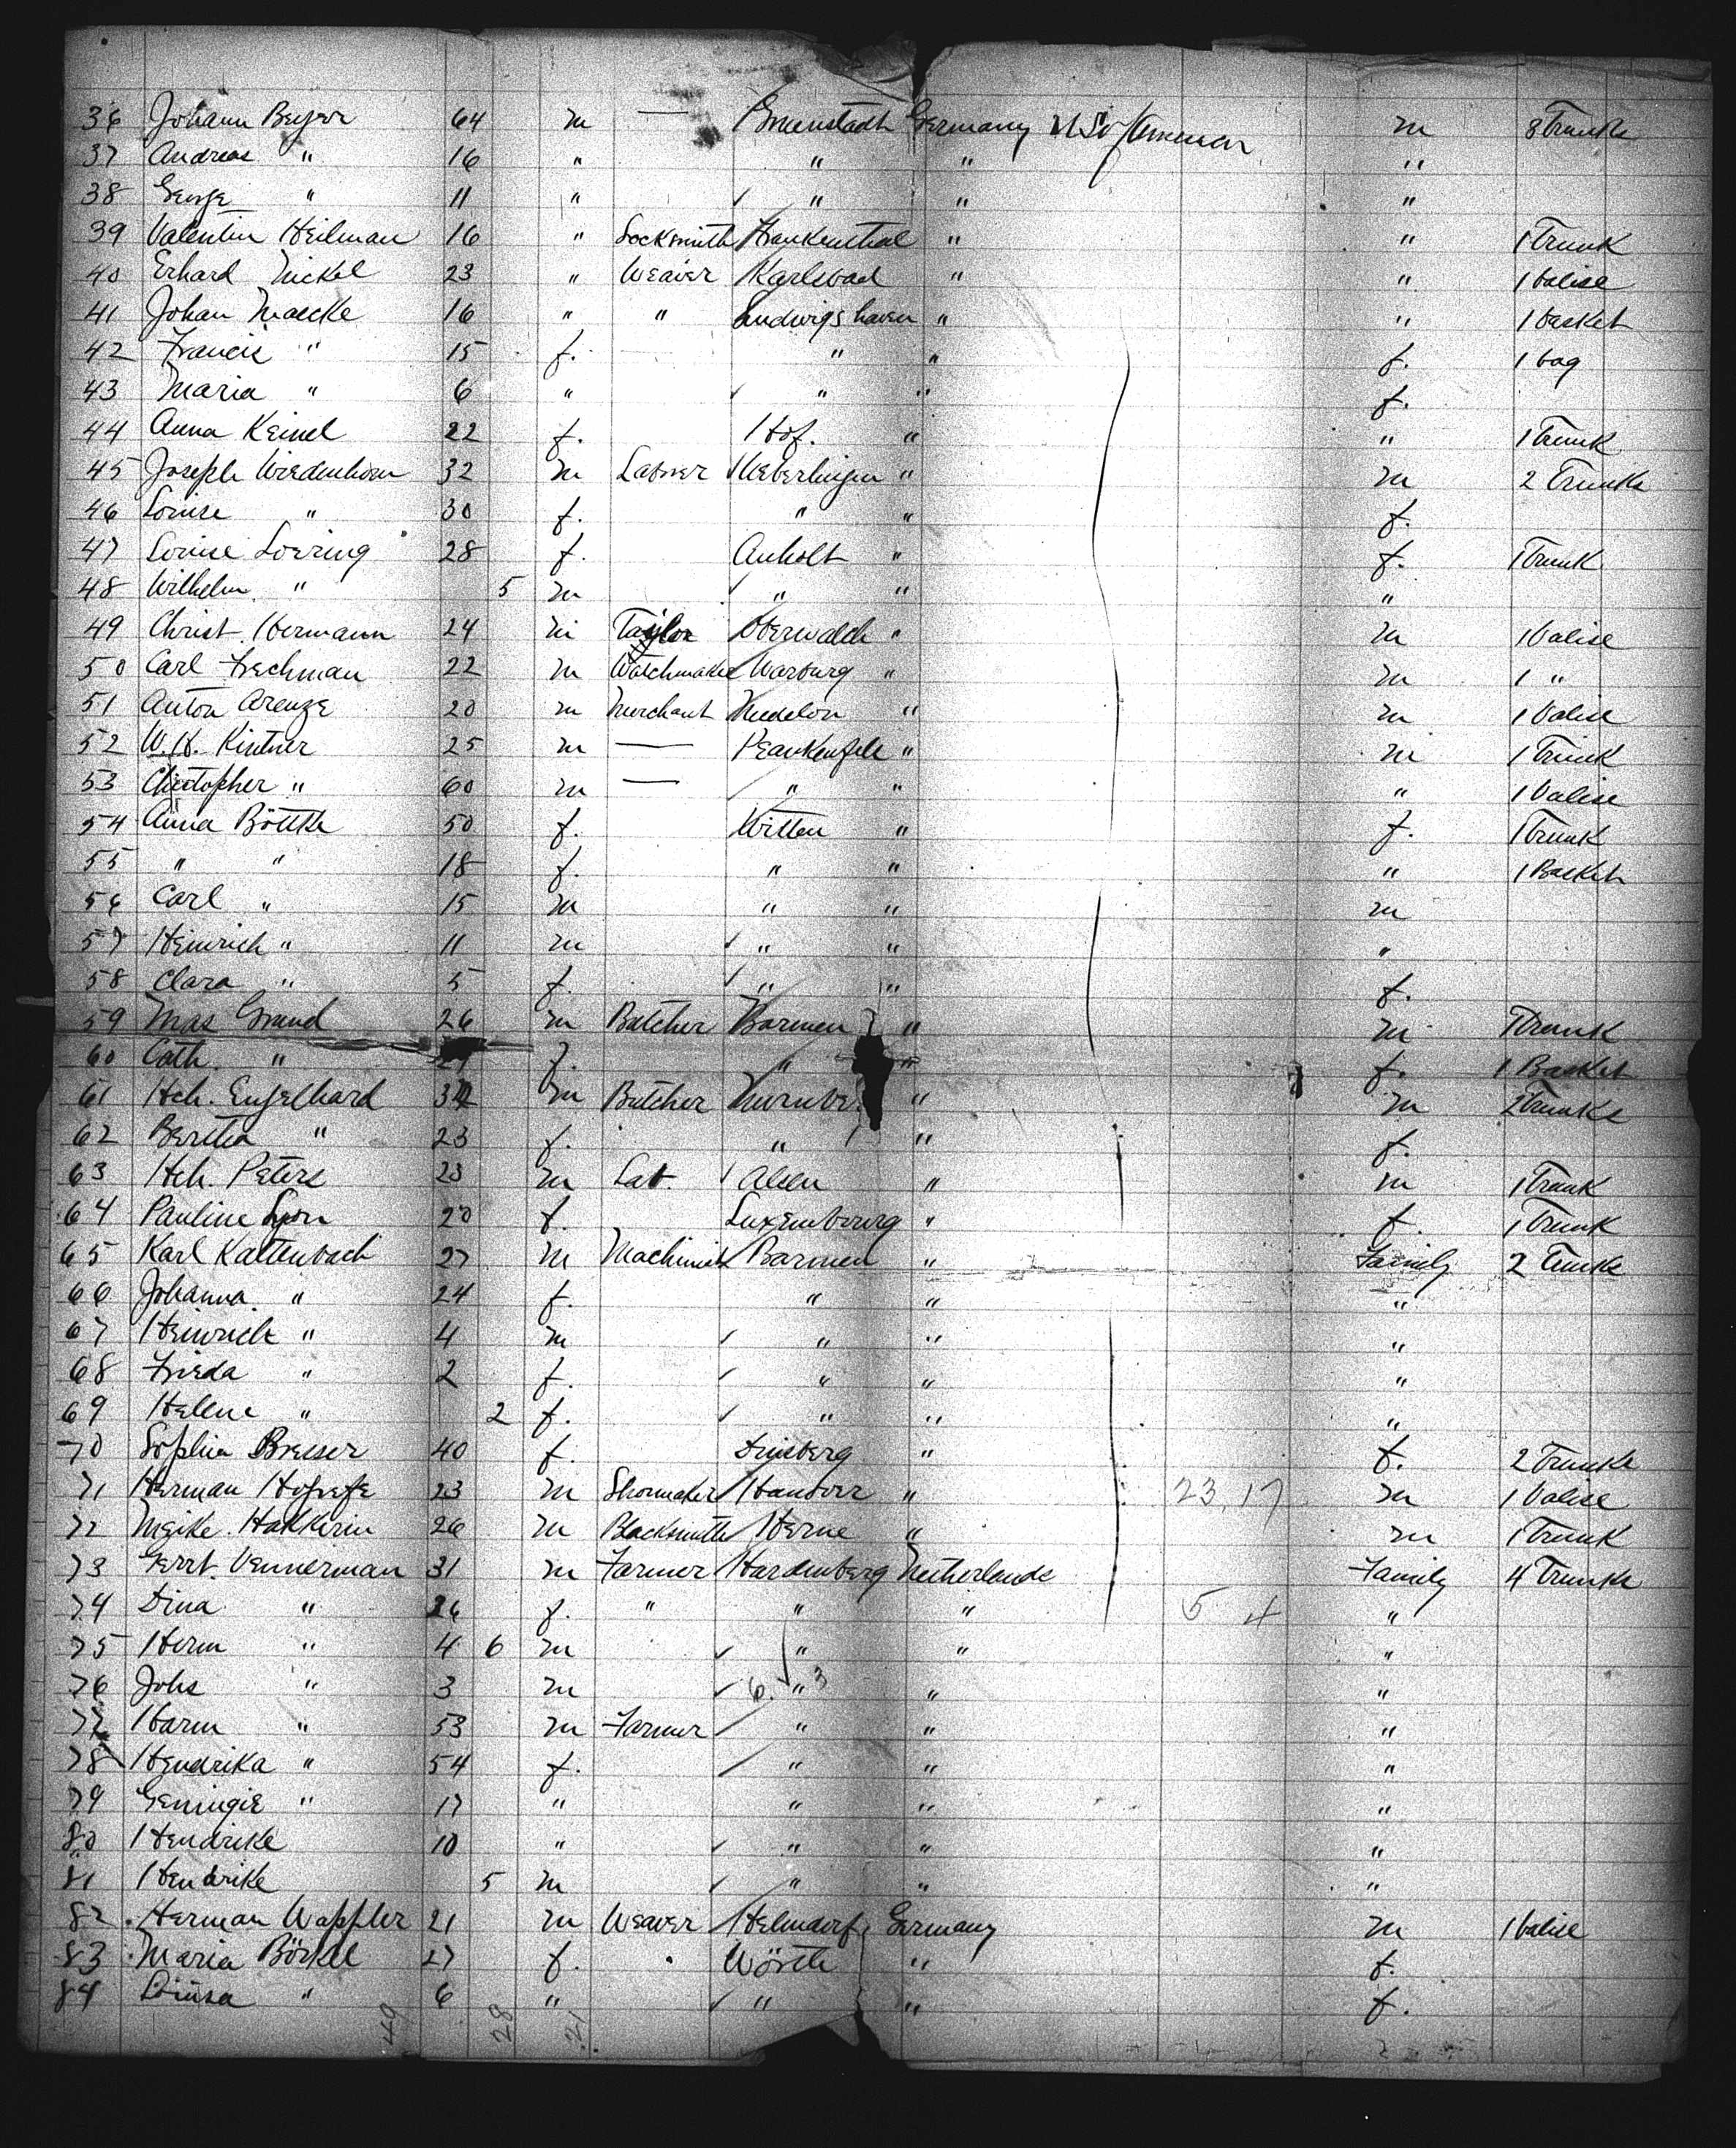 36 Johann Beyer 64 m — Gruenstadt Germany U S of America m 3 Trunks
37 Andreas " 16 " " " "
38 George " 11 " ✓ " " "
39 Valentin Heilman 16 " Locksmith Frankenthal " " 1 Trunk
40 Erhard Nickel 23 " Weaver Karlsbad " " 1 Valise
41 Johan Maecke 16 " " Ludwigshaven " " 1 basket
42 Francis " 15 f. " " f. 1 bag
43 Maria " 6 " ✓ " " f.
44 Anna Keinel 22 f. Hof. " " 1 Trunk
45 Joseph Wiedenhorn 32 m Labner Ueberlingen " m 2 Trunks
46 Louise " 30 f. " " f.
47 Louise Loering 28 f. Anholt " f. 1 Trunk
48 Wilhelm " 5 m ✓ " " "
49 Christ. Hermann 24 m Taylor Oberwalch " m 1 Valise
50 Carl Frechman 22 m Watchmaker Warburg " m 1 "
51 Anton Arenze 20 m Merchant Medelon " m 1 Valise
52 W. H. Kintner 25 m — " m 1 Trunk
53 Christopher " 60 m — " " " 1 Valise
54 Anna Böttke 50 f. Witten " f. 1 Trunk
55 " " 18 f. " " " 1 Basket
56 Carl " 15 m " " m
57 Heinrich " 11 m ✓ " " "
58 Clara " 5 f. ✓ " " f.
59 Max Grund 26 m Butcher Barmen " m 1 Trunk
60 Cath. " f. " " f. 1 Basket
61 Hch. Engelhard m Butcher " m 2 Trunks
62 Bertha " 23 f. " " f.
63 Hch. Peters 23 m Lab. Alsen " m 1 Trunk
64 Pauline Lyon 20 f. Luxembourg " f. 1 Trunk
65 Karl Kaltenbach 27 m Machinist Barmen " Family 2 Trunks
66 Johanna " 24 f. " " "
67 Heinrich " 4 m ✓ " " "
68 Frieda " 2 f. ✓ " " "
69 Helene " 2 f. ✓ " " "
70 Sophia Bresser 40 f. Duisberg " f. 2 Trunks
71 Herman 23 m Shoemaker Hanover " 23, 17 m 1 Valise
72 Meike Hakkerin 26 m Blacksmith Herne " m 1 Trunk
73 Gerrt. Vennerman 31 m Farmer Hardenberg Netherlands Family 4 Trunks
74 Dina " 26 f. " " " 5 4 "
75 Herm " 4 6 m ✓ " " "
76 Johs " 3 m ✓ 6. " 3 " "
77 Harm " 53 m Farmer " " "
78 Hendrika " 54 f. " " "
79 Geningie " 17 " " " "
80 Hendrike 10 " ✓ " " "
81 Hendrike 5 m ✓ " " "
82 Herman Wappler 21 m Weaver Helmdorf Germany m 1 Valise
83 Maria Börkel 27 f. Wörth " f.
84 Louisa " 6 " ✓ " " f.
49 28 21